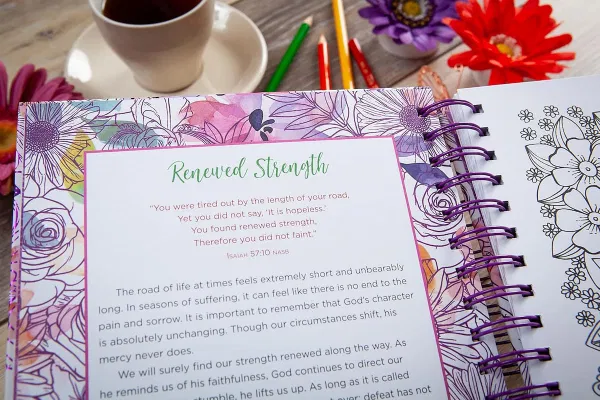 Renewed Strength
"You were tired out by the length of your road,
Yet you did not say, 'It is hopeless.'
You found renewed strength,
Therefore you did not faint."
Isaiah 57:10 NASB
The road of life at times feels extremely short and unbearably
long. In seasons of suffering, it can feel like there is no end to the
pain and sorrow. It is important to remember that God's character
is absolutely unchanging. Though our circumstances shift, his
mercy never does.
We will surely find our strength renewed along the way. As
he reminds us of his faithfulness, God continues to direct our
stumble, he lifts us up. As long as it is called
defeat has not